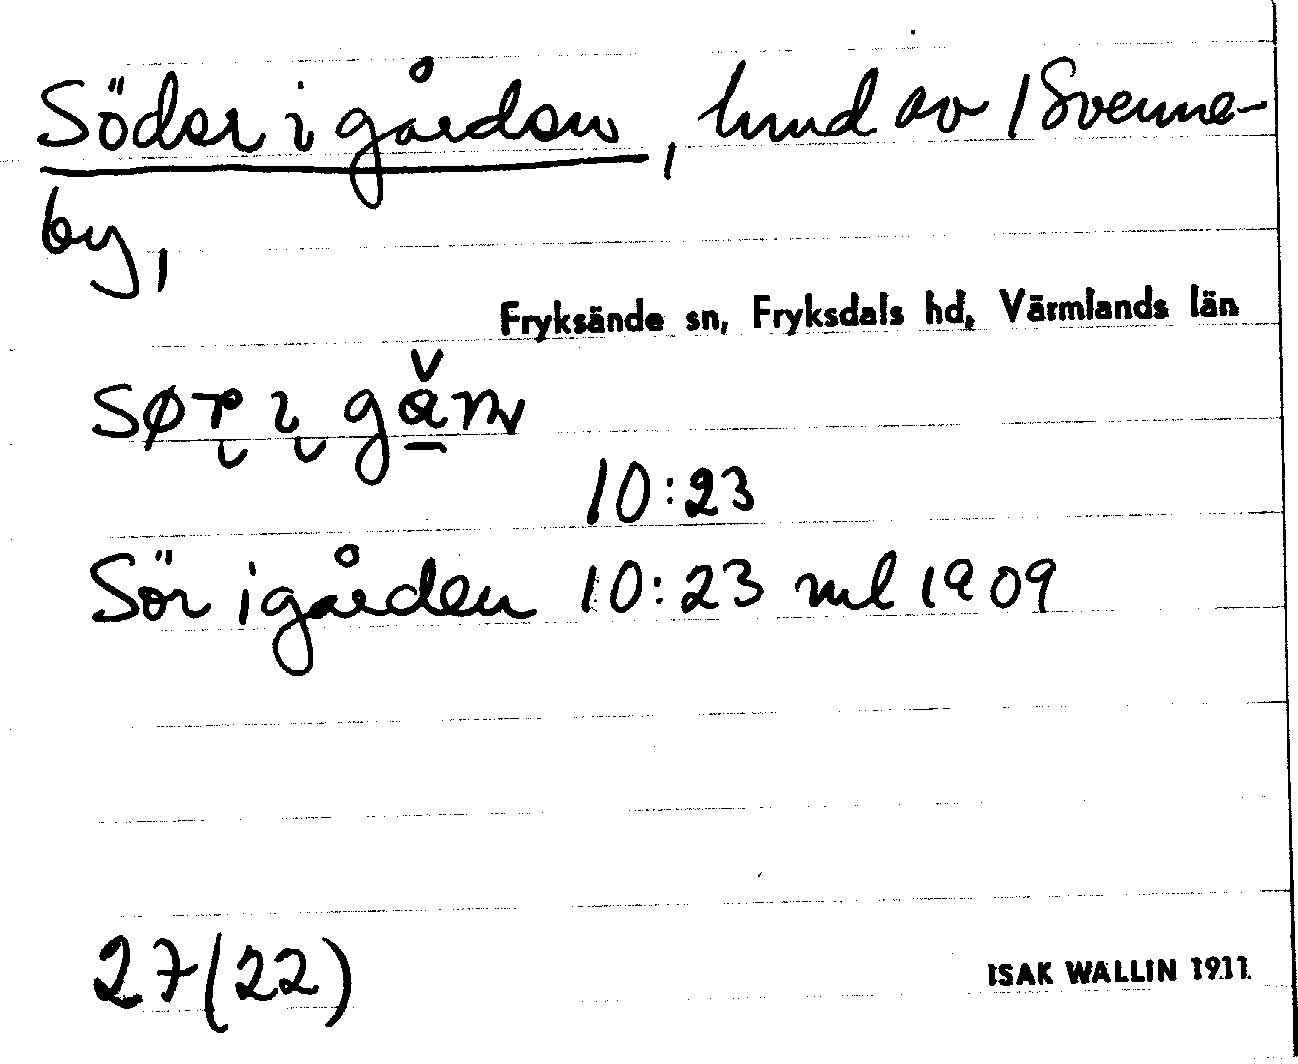 Söder i gården, hmd av 1 Svenne-
by,
Fryksände sn, Fryksdals hd, Värmlands län
10:23
Sör i gården 10:23 ml 1909
27(22)
ISAK WALLIN 1911.